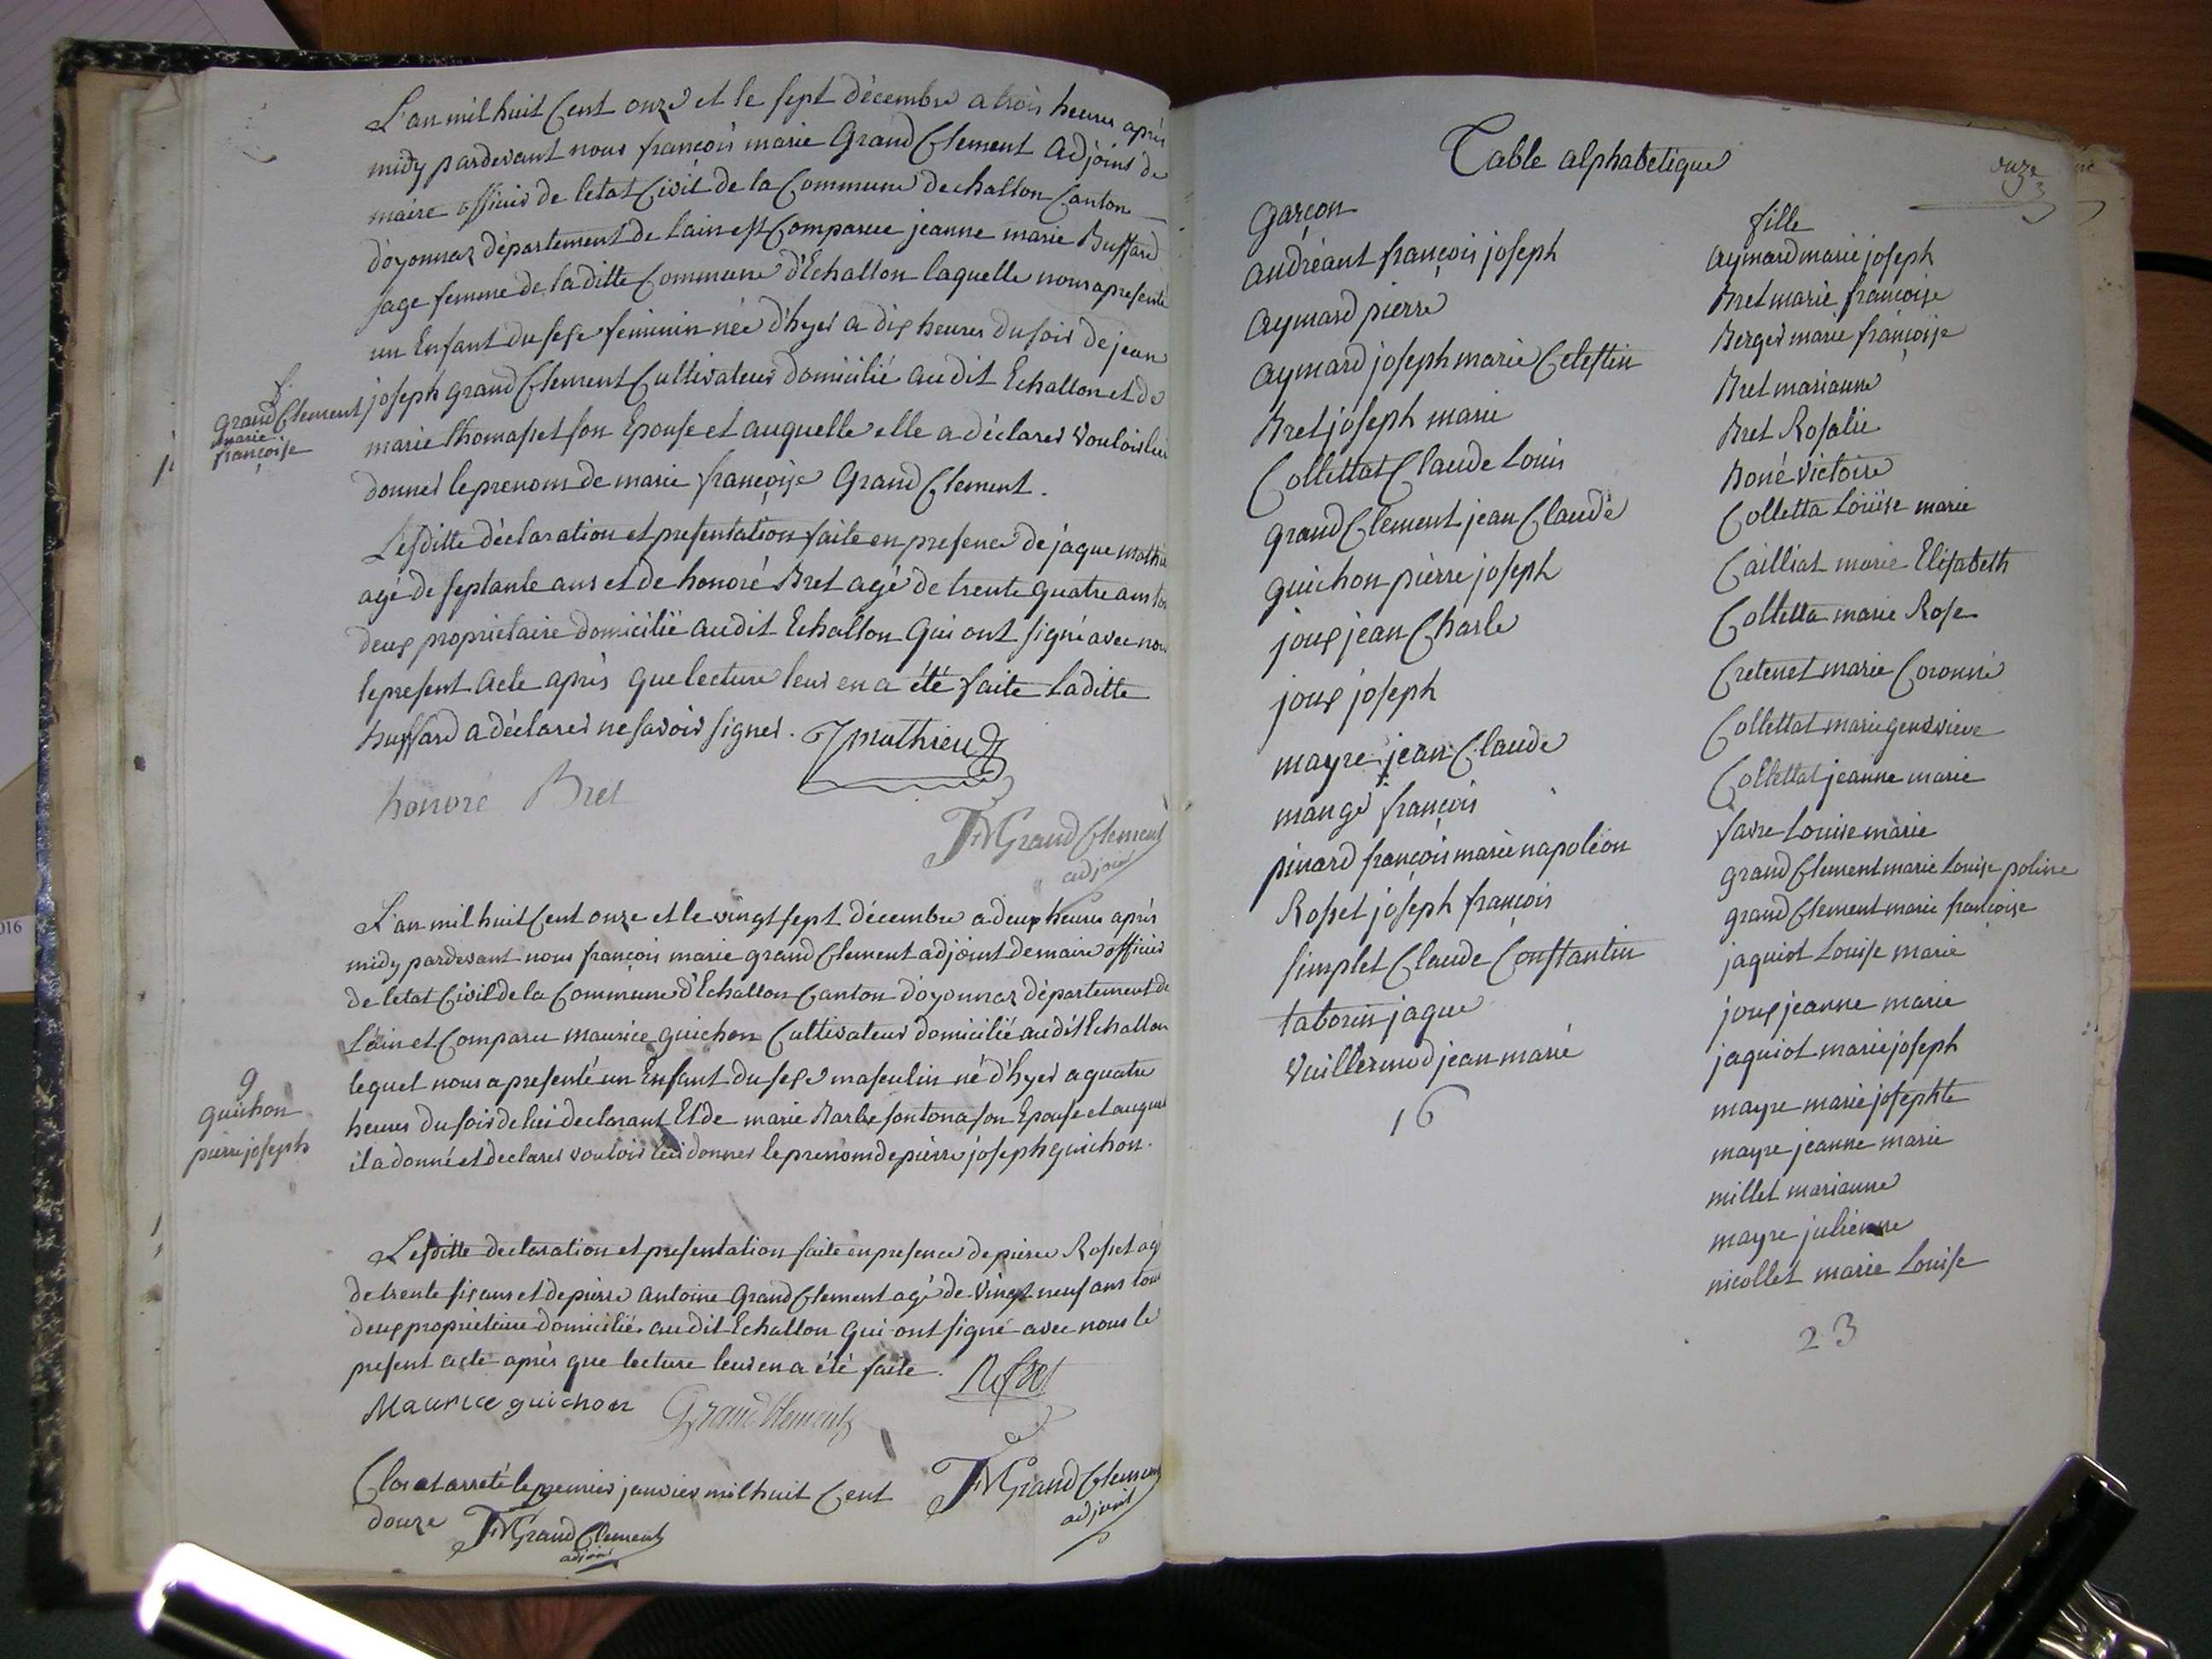 L'an mil huit Cent onze et le sept décembre a trois heures après
midy pardevant nous françois marie Grand Clement Adjoint de
maire officier de letat Civil de la Commune dechallon Canton
d'oyonnaz département de lain est Comparue jeanne marie Buffard
sage femme de laditte Commune d'Echallon laquelle nous a presenté
un Enfant du sexe feminin née d'hyer a dix heures du soir de jean
f.
grand Clement
marie
françoise
joseph grand Clement Cultivateur domicilié audit Echallon et de
marie thomasset son Epouse et auquelle elle a déclarer vouloir lui
donner le prenom de marie françoise Grand Clement.
Lesditte déclaration et presentation faite en presence de jaque mathieu
agé de septante ans et de honoré Bret agé de trente quatre ans tous
deux propriétaire domicilié audit Echallon Qui ont signé avec nous
le present acte après que lecture leur en a été faite laditte
buffard a déclarer ne savoir signer. J mathieu
honoré Bret
FM Grand Clement
adjoint
L'an mil huit Cent onze et le vingt sept décembre a deux heures après
midy pardevant nous françois marie grand Clement adjoint demaire officier
de letat Civil de la Commune d'Echallon Canton d'oyonnaz département de
Lain et Comparu maurice guichon Cultivateur domicilié audit Echallon
9
guichon
pierre joseph
lequel nous a presenté un Enfant du sexe masculin né d'hyer a quatre
heures du soir de lui declarant Et de marie Barbe fontona son Epouse et auquel
il a donné et declarer vouloir lui donner le prenom de pierre joseph guichon.
Lesditte declaration et presentation faite en presence de pierre Rosset agé
de trente six ans et de pierre antoine Grand Clement agé de vingt neuf ans tous
deux propriétaire domicilié audit Echallon Qui ont signé avec nous le
present acte après que lecture leur en a été faite. Rosset
Maurice guichon Grand Clement
FM Grand Clement
adjoint
Clos et arreté le premier janvier mil huit Cent
douze FM Grand Clement
adjoint
Table alphabetique
onze
garçon
andréant françois joseph
aymard pierre
aymard joseph marie Celestin
Bret joseph marie
Collettat Claude Louis
grand Clement jean Claude
guichon pierre joseph
joux jean Charle
joux joseph
mayre jean Claude
mange françois
pinard françois marie napoléon
Rosset joseph françois
simplet Claude Constantin
taborin jaque
Vuillermod jean marie
16
fille
aymard marie joseph
Bret marie françoise
Berger marie françoise
Bret marianne
Bret Rosalie
Boné victoire
Colletta Louise marie
Cailliat marie Elisabeth
Colletta marie Rose
Cretenet marie Coronne
Collettat marie genevieve
Collettat jeanne marie
favre Louise marie
grand Clement marie Louise poline
grand Clement marie françoise
jaquiot Louise marie
joux jeanne marie
jaquiot marie joseph
mayre marie josephte
mayre jeanne marie
millet marianne
mayre julienne
nicollet marie Louise
23
016